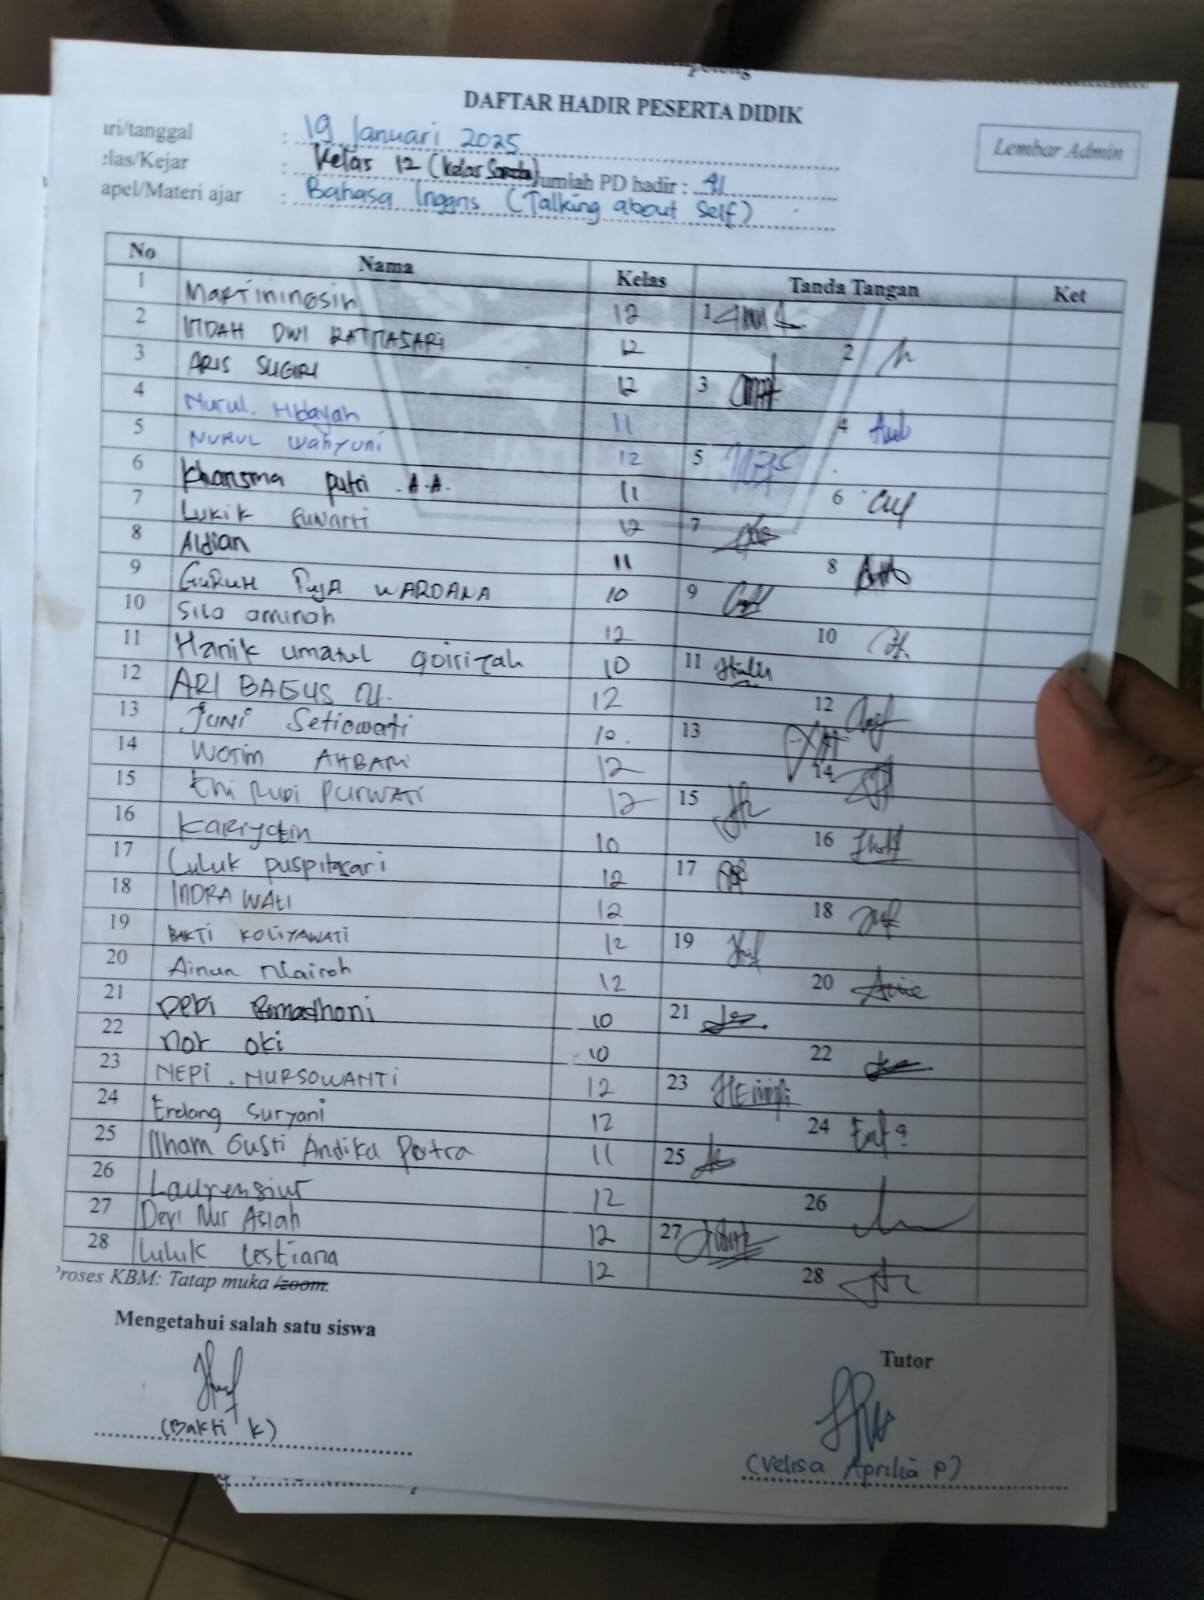 DAFTAR HADIR PESERTA DIDIK
Lembar Admin
ri/tanggal : 19 Januari 2025
las/Kejar : Kelas 12 (Kelas umlah PD hadir : 41
apel/Materi ajar : Bahasa Inggris (Talking about Self)
No Nama Kelas Tanda Tangan Ket
1 Martiningsih 12 1
2 INDAH DWI RATNASARI 12 2
3 ARIS SUGIRI 12 3
4 Nurul. Hidayah 11 4
5 NURUL Wahyuni 12 5
6 Kharisma putri .A.A. 11 6
7 Lukik Sunarti 12 7
8 Aldian 11 8
9 GURUH PUJA WARDANA 10 9
10 aminah 12 10
11 Hanik umatul qoiriyah 10 11
12 ARI BAGUS 12 12
13 Juni Setiowati 10. 13
14 12 14
15 PURWATI 12 15
16 10 16
17 Luluk puspitasari 12 17
18 INDRAWATI 12 18
19 BAKTI KOLIYAWATI 12 19
20 Ainun 12 20
21 Depi Romadhoni 10 21
22 nor oki 10 22
23 NEPI . NURSOWANTI 12 23
24 Endang Suryani 12 24
25 Ilham Gusti Andika Putra 11 25
26 Laurensiur 12 26
27 Devi Nur Asiah 12 27
28 Luluk Lestiana 12 28
roses KBM: Tatap muka /zoom.
Mengetahui salah satu siswa
Tutor
(Bakti K)
(Velisa Aprilia P)